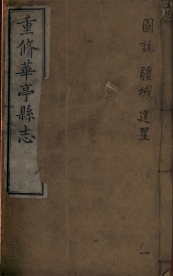 重脩華亭縣志
圖說 疆域 建置
一